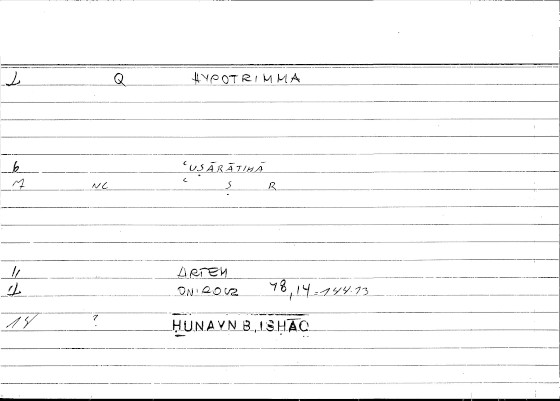 1 Q HYPOTRIMMA
6 ʿUṢĀRĀTIHĀ
7 NC ʿ Ṣ R
11 ARTEM
ONIROCR 78,14 = 144.13
14 ? ḤUNAYN B. ISḤĀQ